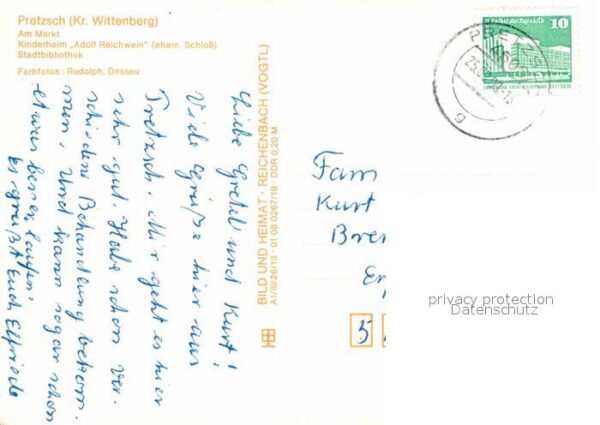 Pretzsch (Kr. Wittenberg)
Am Markt
Kinderheim „Adolf Reichwein" (ehem. Schloß)
Stadtbibliothek
Farbfotos: Rudolph, Dessau
Liebe Gretel und Kurt!
Viele Grüße hier aus
Pretzsch. Mir geht es hier
sehr gut. Habe schon ver-
schiedene Behandlung bekom-
men. Und kann sogar schon
etwas besser laufen!
Es grüßt Euch Elfriede
BILD UND HEIMAT · REICHENBACH (VOGTL)
A1/III/26/13 · 01 08 0267/19 · DDR 0,20 M
10
PRETZSCH
6
Fam
Kurt
5
privacy protection
Datenschutz